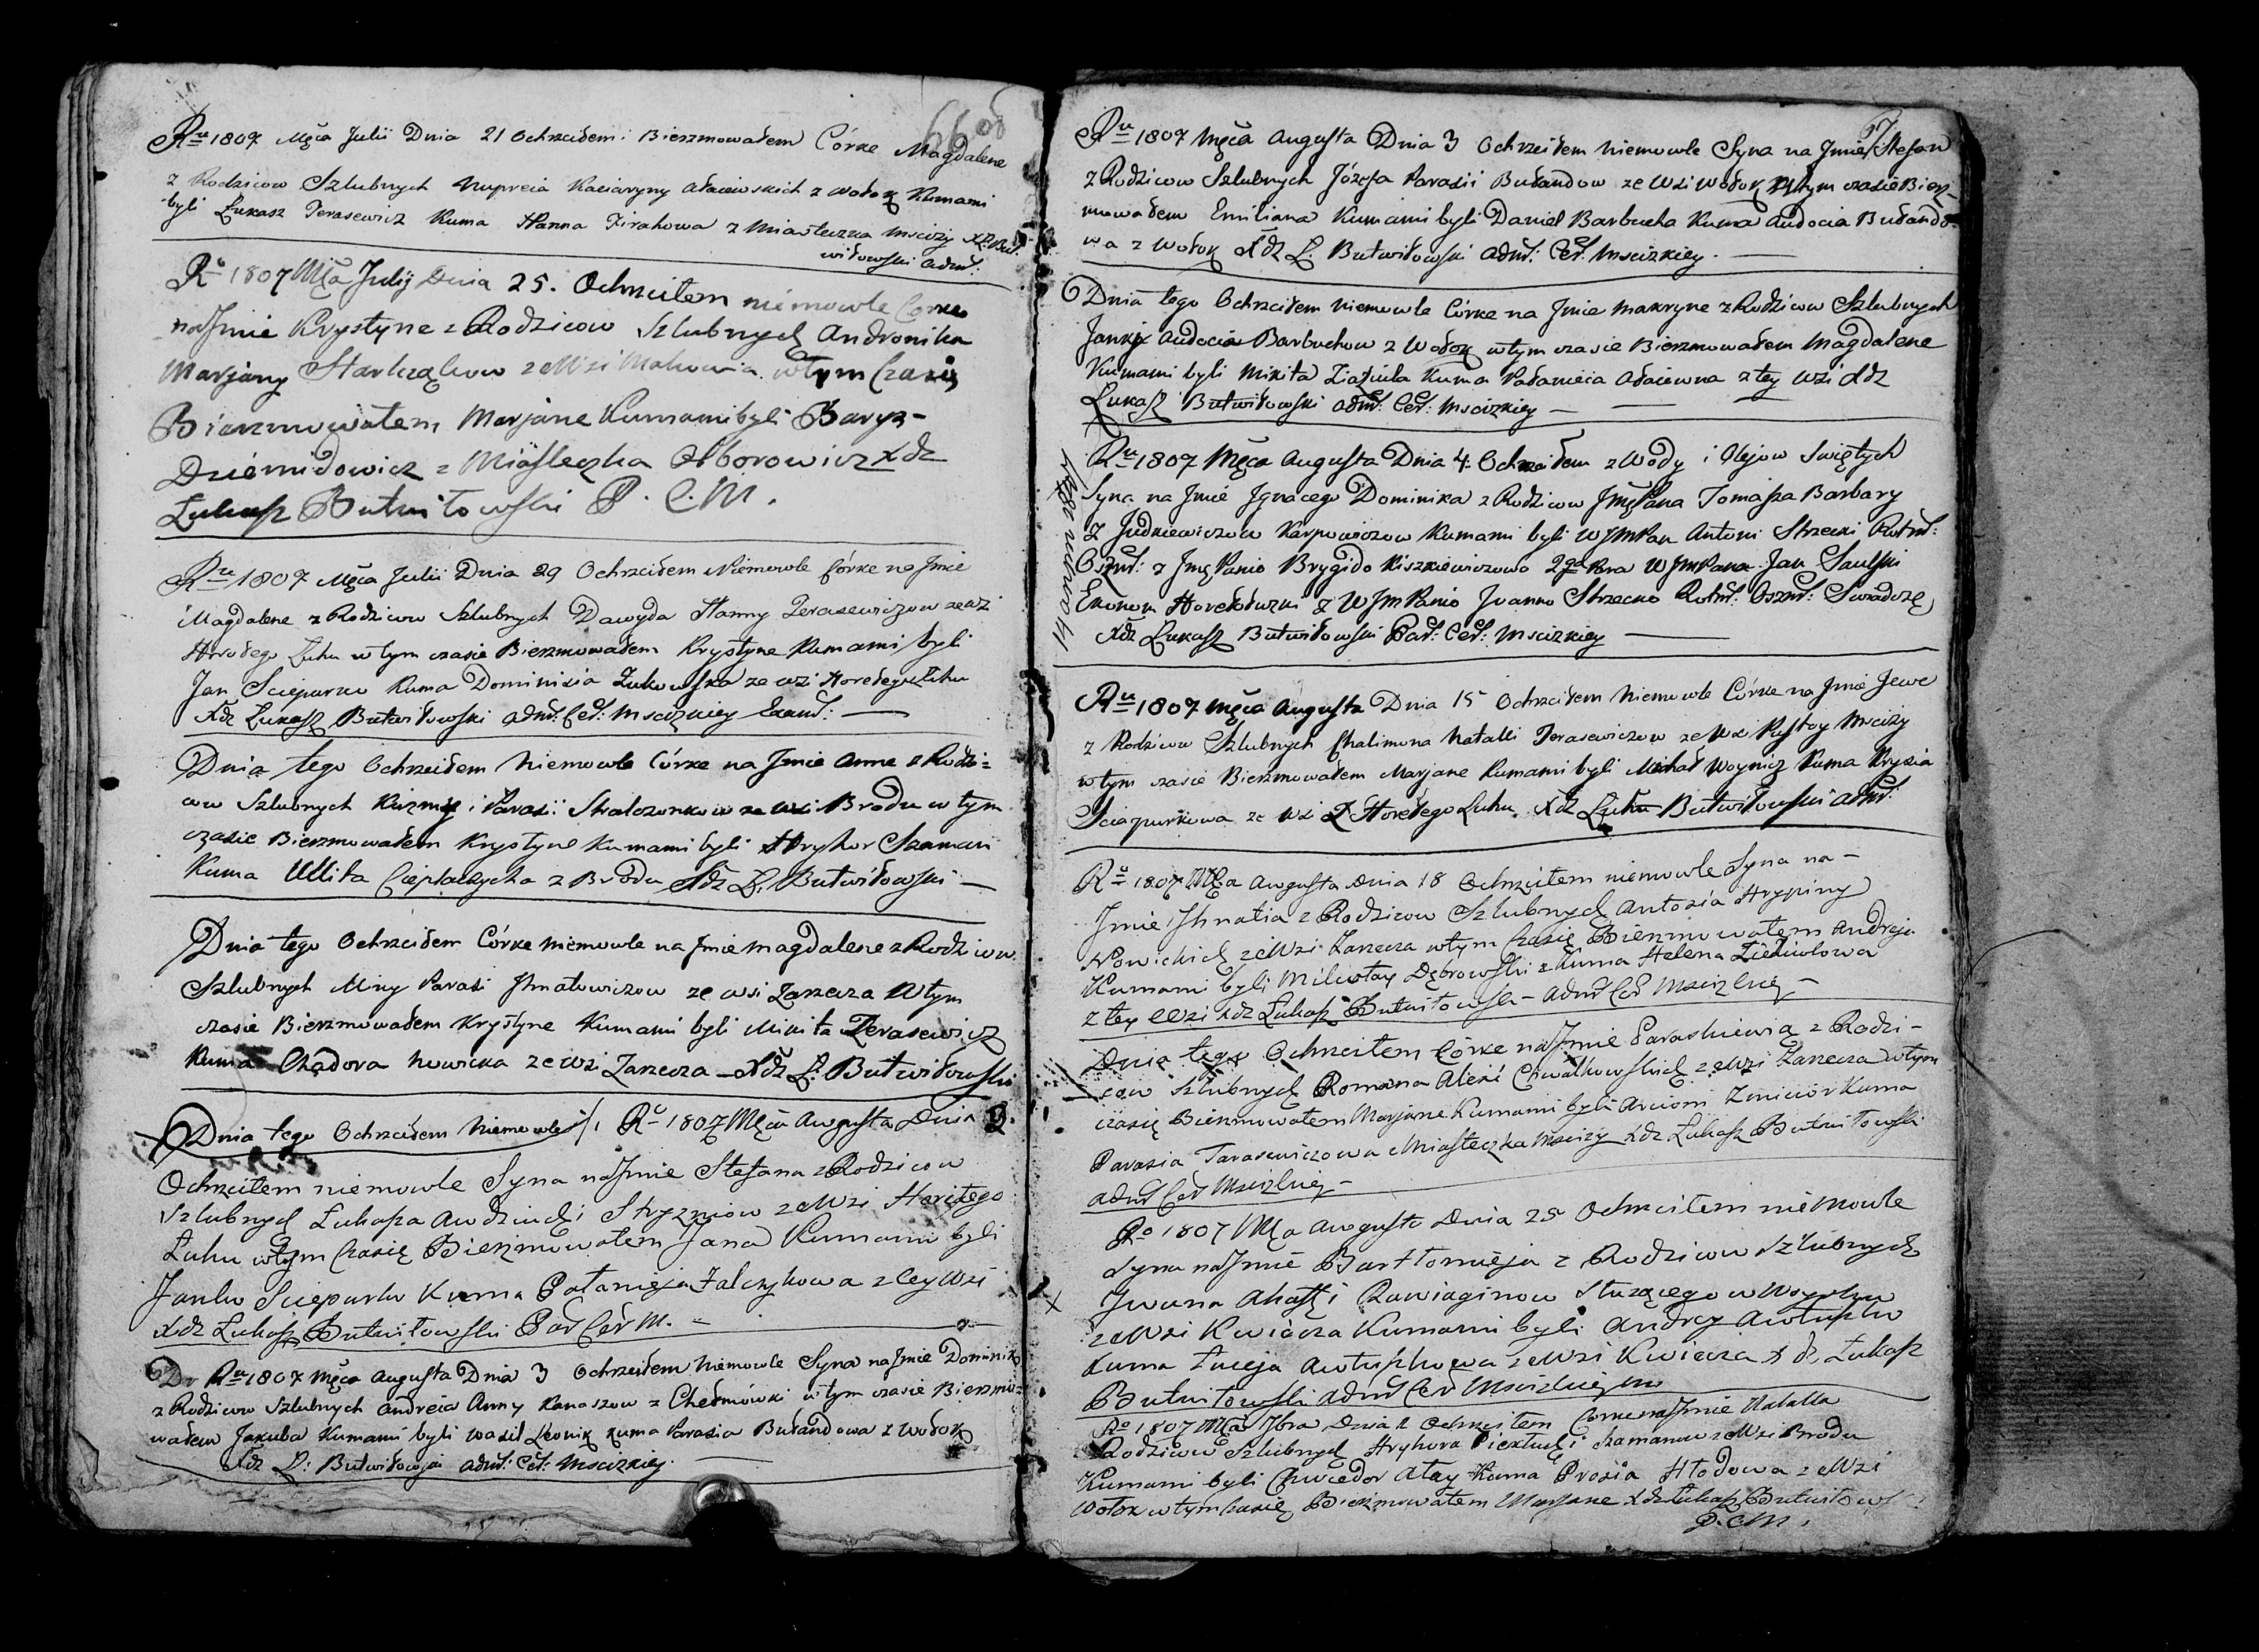 66 об
Ru 1807 Mca Julii Dnia 21 Ochrzciłem i Bierzmowałem Córke Magdalene
z Rodzicow Szlubnych Nupreia Kaciaryny Ałaiewskich z Wołok Kumami
byli Łukasz Terasewicz Kuma Hanna Zirahowa z Miasteczka Mscizy Xdz But-
wiłowski Admł:
Ru 1807 Mca Julij Dnia 25. Ochrzciłem niemowle Corke
na Jmie Krystyne z Rodzicow Szlubnych Andronika
Marjany z Wsi wtym Czasie
Bierzmowałem Marjane Kumami byli Barys-
Dziemidowicz z Miasteczka Xdz
Łukasz Butwiłowski P. C. M.
Ru 1807 Mca Julii Dnia 29 Ochrzciłem Niemowle Córke na Jmie
Magdalene z Rodzicow Szlubnych Dawyda Hanny Terasewiczow ze Wsi
Horełego Łuhu w tym czasie Bierzmowałem Krystyne Kumami byli
Jan Sciepurko Kuma Dominisia Zukowska ze wsi Horełego Łuhu
Xdz Łukasz Butwiłowski Admł: Ceł: Mscizkiey
Dnia tego Ochrzciłem Niemowle Córke na Jmie Anne z Rodzi=
cow Szlubnych Kuzmy i Parasii ze wsi Brodu w tym
czasie Bierzmowałem Krystyne Kumami byli Hryhor Szaman
Kuma Ullita z Brodu Xdz Ł: Butwiłowski —
Dnia tego Ochrzciłem Córke niemowle na Jmie Magdalene z Rodzicow
Szlubnych Miny Parasi Jhnatowiczow ze wsi Zarzecza w tym
czasie Bierzmowałem Krystyne Kumami byli Mikita Terasewicz
Kuma Chadora Nowicka ze Wsi Zarzecza — Xdz Ł: Butwiłowski
Dnia tego Ochrzciłem Niemowle Ru 1807 Mca Augusta Dnia 2.
Ochrzciłem niemowle Syna na Jmie Stefana z Rodzicow
Szlubnych Łukasza Audziuchi ze Wsi Horełego
Łuhu wtym Czasie Bierzmowałem Jana Kumami byli
Janko Sciepurko Kuma Pałanieja z tey Wsi
Xdz Łukasz Butwiłowski Par Cer M.
Ru 1807 Mca Augusta Dnia 3 Ochrzciłem Niemowle Syna na Jmie Dominik
z Rodzicow Szlubnych Andreia Anny Kanaszow z Chełmówki w tym czasie Bierzmo=
wałem Jakuba Kumami byli Wasil Leonik kuma Parasia Bułandowa z Wołok
Xdz Ł: Butwiłowski Admł: Ceł: Mscizkiey.
Ru 1807 Mca Augusta Dnia 3 Ochrzciłem Niemowle Syna na Jmie Stefan
z Rodzicow Szlubnych Józefa Parasii Bułandow ze Wsi Wołok w tym czasie Bierz-
mowałem Emiliana Kumami byli Daniel Barbucha Kuma Audocia Bułando-
wa z Wołok Xdz Ł. Butwiłowski Admł: Ceł: Mscizkiey. —
Dnia tego Ochrzciłem Niemowle Córke na Jmie Makryne z Rodzicow Szlubnych
Janki Audocia Barbuchow z Wołok wtym czasie Bierzmowałem Magdalene
Kumami byli Mikita Ziaziula Kuma Pałanieia Ałaiewna z tey Wsi Xdz
Łukasz Butwiłowski Admł: Ceł: Mscizkiey —
Ru 1807 Mca Augusta Dnia 4: Ochrzciłem z Wody i Olejow Swiętych
Syna na Jmie Jgnacego Dominika z Rodzicow Jmę Pana Tomasza Barbary
z Judniewiczow Karpowiczow Kumami byli WJmPan Antoni Strzecki Rotmł:
Oszmł: z Jmę Panio Brygido Kiszkiewiczowo 2ga Para WJmPana Jan Saulski
Ekonom z WJmPanio Joanno Strzecko Rotmł: Oszmł: Swiadczę
Xdz Łukasz Butwiłowski Par: Ceł: Mscizkiey —
Ru 1807 Mca Augusta Dnia 15 Ochrzciłem Niemowle Córke na Jmie Jewe
z Rodzicow Szlubnych Chalimona Natalli Terasewiczow ze Wsi Pustoy Mscizy
wtym czasie Bierzmowałem Marjane Kumami byli Michał Woynicz Kuma Krysia
Sciapurkowa ze Wsi Horełego Łuhu. Xdz Łuka Butwiłowski Admł
Ru 1807 Mca Augusta Dnia 18 Ochrzciłem niemowle Syna na -
Jmie Jhnatia z Rodzicow Szlubnych Antosia Hrypiny
Nowickich ze Wsi Zarzecza wtym Czasie Bierzmowałem Andreja
Kumami byli Mikołay Dębrowski z Kuma Helena Ziaziulowa
z tey Wsi Xdz Łukasz Butwiłowski - Admł Ceł Mscizkiey -
Dnia tego Ochrzciłem Córke na Jmie Paraskiewią z Rodzi-
cow Szlubnych Romana Alexi Chwałkowskich ze Wsi Zarzecza wtym
czasie Bierzmowałem Marjane Kumami byli Arciom Kuma
Parasia Tarasewiczowa z Miasteczka Mscizy Xdz Łukasz Butwiłowski
Admł Ceł Mscizkiey -
Ro 1807 Mca Augusta Dnia 25 Ochrzciłem niemowle
Syna na Jmie Bartłomieja z Rodzicow Szlubnych
Jwana Służącego w Woysku
ze Wsi Kwiacza Kumami byli Andrey Awłuszko
Kuma Łucyja Awłuszkowa ze Wsi Kwiacza Xdz Łukasz
Butwiłowski Admł Ceł Mscizkiey
Ro 1807 Mca 7bra Dnia 2 Ochrzciłem Corke na Jmie Natalla
Rodzicow Szlubnych Hryhora Szamanow ze Wsi Brodu
Kumami byli Chwiedor Ałay Kuma Prosia Hłodowa ze Wsi
Wołok wtym czasie Bierzmowałem Marjane Xdz Łukasz Butwiłows
P. C M.